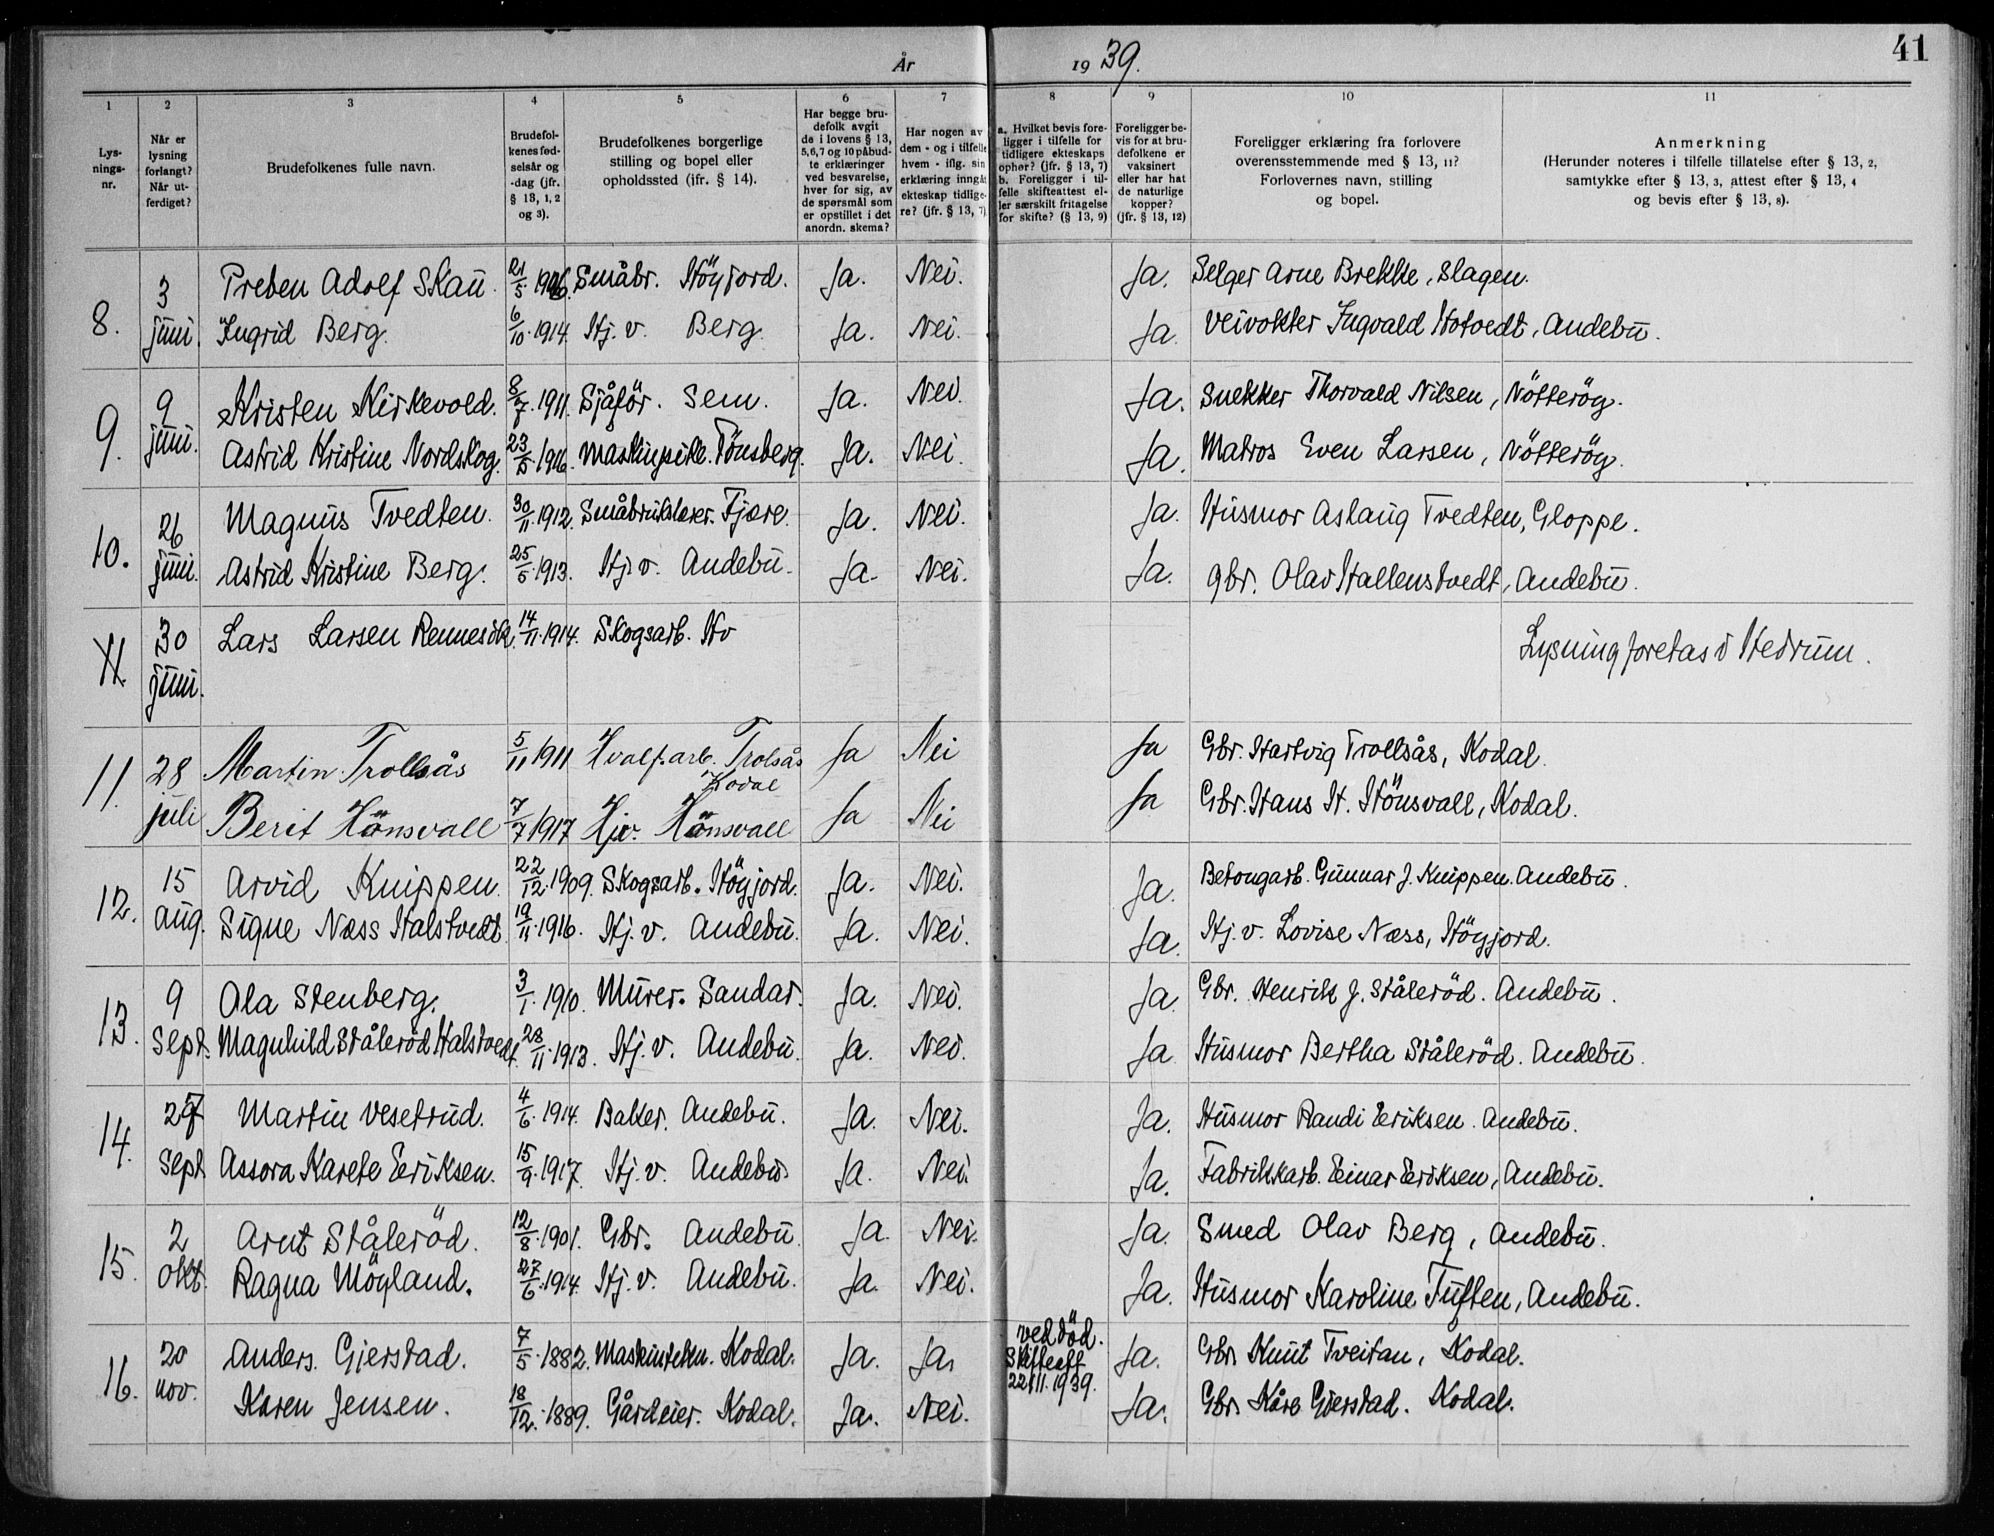 År 1939.
41
1
2
3
4
5
6
7
8
9
10
11
Lys-
nings-
nr.
Når er
lysning
forlangt?
Når ut-
ferdiget?
Brudefolkenes fulle navn.
Brudefol-
kenes fød-
selsår og
-dag (jfr.
§ 13, 1, 2
og 3).
Brudefolkenes borgerlige
stilling og bopel eller
opholdssted (ifr. § 14).
Har begge bru-
defolk avgit
de i lovens § 13,
5,6,7 og 10 påbud-
te erklæringer
ved besvarelse,
hver for sig, av
de spørsmål som
er opstillet i det
anordn. skema?
Har nogen av
dem - og i tilfelle
hvem - iflg. sin
erklæring inngåt
ekteskap tidlige-
re? (jfr. § 13, 7)
a. Hvilket bevis fore-
ligger i tilfelle for
tidligere ekteskaps
ophør? (jfr. § 13, 7)
b. Foreligger i til-
felle skifteattest el-
ler særskilt fritagelse
for skifte? (§ 13, 9)
Foreligger be-
vis for at bru-
defolkene er
vaksinert
eller har hat
de naturlige
kopper?
(jfr. § 13, 12)
Foreligger erklæring fra forlovere
overensstemmende med § 13, 11?
Forlovernes navn, stilling
og bopel.
Anmerkning
(Herunder noteres i tilfelle tillatelse efter § 13, 2,
samtykke efter § 13, 3, attest efter § 13, 4
og bevis efter § 13, 8).
8. 3 juni. Preben Adolf Skau. 21/5 1906. Småbr. Höyjord. Ja. Nei. Ja. Selger Arne Brekke, Slagen.
Ingrid Berg. 6/10 1914. Hj. v. Berg. Ja. Nei. Ja. Veivokter Ingvald Hotvedt, Andebu.
9. 9 juni. Kristen Kirkevold. 8/7 1911. Sjåför. Sem. Ja. Nei. Ja. Snekker Thorvald Nilsen, Nötteröy.
Astrid Kristine Nordskog. 23/5 1916. Maskinpike. Tönsberg. Ja. Nei. Ja. Matros Even Larsen, Nötteröy.
10. 26 juni. Magnus Tvedten. 30/11 1912. Småbruklærer. Fjære. Ja. Nei. Ja. Husmor Aslaug Tvedten, Gloppe.
Astrid Kristine Berg. 25/5 1913. Hj. v. Andebu. Ja. Nei. Ja. gbr. Olav Hallenstvedt, Andebu.
11. 30 juni. Lars Larsen Rennesik. 14/11 1914. Skogsarb. Hv Lysning foretas i Hedrum.
11. 28 juli Martin Trollsås 5/11 1911 Hvalf.arb. Trolsås Kodal Ja Nei Ja Gbr. Hartvig Trollsås, Kodal.
Berit Hönsvall 7/7 1917 Hj.v. Hönsvall Ja Nei Ja Gbr. Hans H. Hönsvall, Kodal.
12. 15 aug. Arvid Knippen. 22/12 1909. Skogsarb. Höyjord. Ja. Nei. Ja. Betongarb. Gunnar J. Knippen. Andebu.
Signe Næss Halstvedt. 19/11 1916. Hj. v. Andebu. Ja. Nei. Ja. Hj. v. Lovise Næss, Höyjord.
13. 9 Sept. Ola Stenberg. 3/1 1910. Murer. Sandar. Ja. Nei. Ja. Gbr. Henrik J. Ståleröd. Andebu.
Magnhild Ståleröd Halstvedt. 28/11 1913. Hj. v. Andebu. Ja. Nei. Ja. Husmor Bertha Ståleröd. Andebu.
14. 27 Sept Martin Vesetrud. 4/6 1914. Baker. Andebu. Ja. Nei. Ja. Husmor Randi Eriksen. Andebu.
Assora Karete Eriksen. 15/9 1917. Hj. v. Andebu. Ja. Nei. Ja. Fabrikkarb. Einar Eriksen, Andebu.
15. 2 okt. Arnt Ståleröd. 12/8 1901. Gbr. Andebu. Ja. Nei. Ja. Smed Olav Berg, Andebu.
Ragna Möyland. 27/6 1914. Hj. v. Andebu. Ja. Nei. Ja. Husmor Karoline Tuften, Andebu.
16. 20 nov. Anders Gjerstad. 7/5 1882. Kodal. Ja. Ja. ved död. Skifteatt 22/11. 1939. Ja. Gbr. Knut Tveitan, Kodal.
Karen Jensen. 18/12 1889. Gårdeier. Kodal. Ja. Nei. Ja. Gbr. Kåre Gjerstad. Kodal.